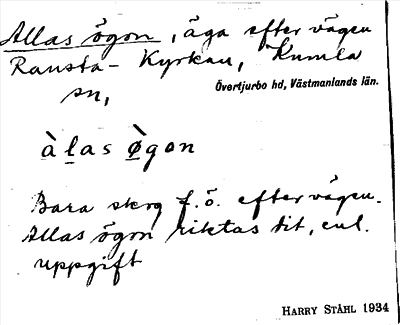 Allas ögon, äga efter vägen
Ransta - Kyrkan, Kumla
sn,
Övertjurbo hd, Västmanlands län.
àḷas ø̀gon
Bara skog f.ö. efter vägen.
Allas ögon riktas dit, enl.
uppgift
HARRY STÅHL 1934